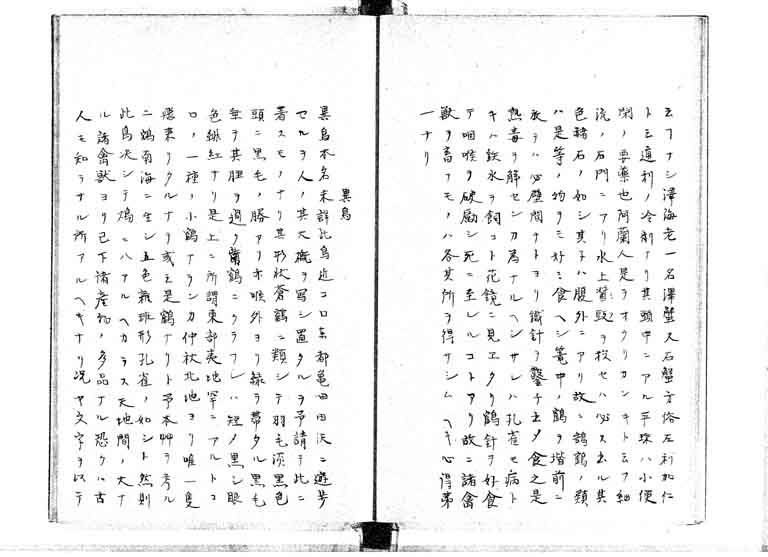 云フナシ澤海老一名澤蟹又石蟹方俗左利加仁
ト云通利ノ冷剤ナリ其頭中ニアル平珠ハ小便
閉ノ要薬也阿蘭人是ヲオクリカンキトニフ細
流ノ石門ニアリ水上ノ頭ヲ投セハ必ス出ル其
色赭石ノ如シ其子ハ腹外ニアリ故ニ鶴ノ類
ハ是等ノ物ヲミ好ミ食ヘシ篭中ノ鶴ヲ堦前ニ
放テハ必壁間ナトヨリ鐵針ヲ鑿チ出メ食之是
熱毒ヲ解セン力為ナルヘンサレハ孔雀モ病ト
キハ鉄水ヲ飼コト花鏡ニ見エタリ鶴針ヲ好食
テ咽喉ヲ破シ死ニ至レルコトアリ故ニ諸禽
獣ヲ畜フモノハ各其所ヲ得サシムヘキ心得第
一ナリ
異鳥
異鳥本名未詳此鳥近コロ東都亀田田沢ニ遊歩
セルヲ人ノ其大概ヲ写シ置タルヲ予請テ此ニ
著スモノナリ其形状蒼鶴ニ類シテ羽毛淡黒色
頭ニ黒毛ノ勝アリホ喉外ヨリ緑ヲ帯タル黒毛
垂テ其胆ヲ過ク鶴ニクラフレハ短ノ黒シ眼
色緋紅ナリ是上ニ所謂東部夷地罕ニアルトコ
ロノ一種ノ小鶴ナランカ仲秋北地ヨリ唯一隻
飛来リクルナリ或云是鶴ナリト予本艸ヲ考ル
ニ鴆南海ニ生シ五色斑形孔雀ノ如シト然則
此鳥决シテ鴆ニハアルヘカラス天地間ノ大ナ
ル諸禽獣ヨリ已下諸産物ノ多品ナル恐クハ古
人モ知ラサル所アルヘキナリ况ヤ文字ヲ以テ